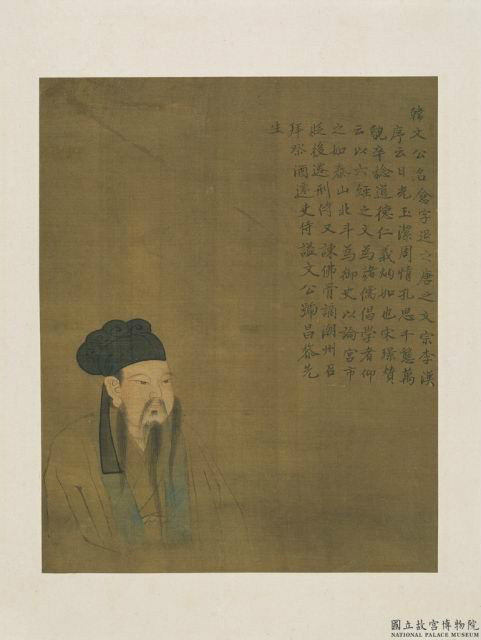 韓文公名愈字退之唐之文宗李漢
序云日光玉潔周情孔思千態萬
貌卒道德仁義炳如也宋璟贊
云以六經之文為諸儒倡學者仰
之如泰山北斗為御史以論宮市
貶後遷刑侍又諫佛骨謫潮州召
拜祭酒遷吏侍謚文公號昌黎先
生
國立故宮博物院
NATIONAL PALACE MUSEUM